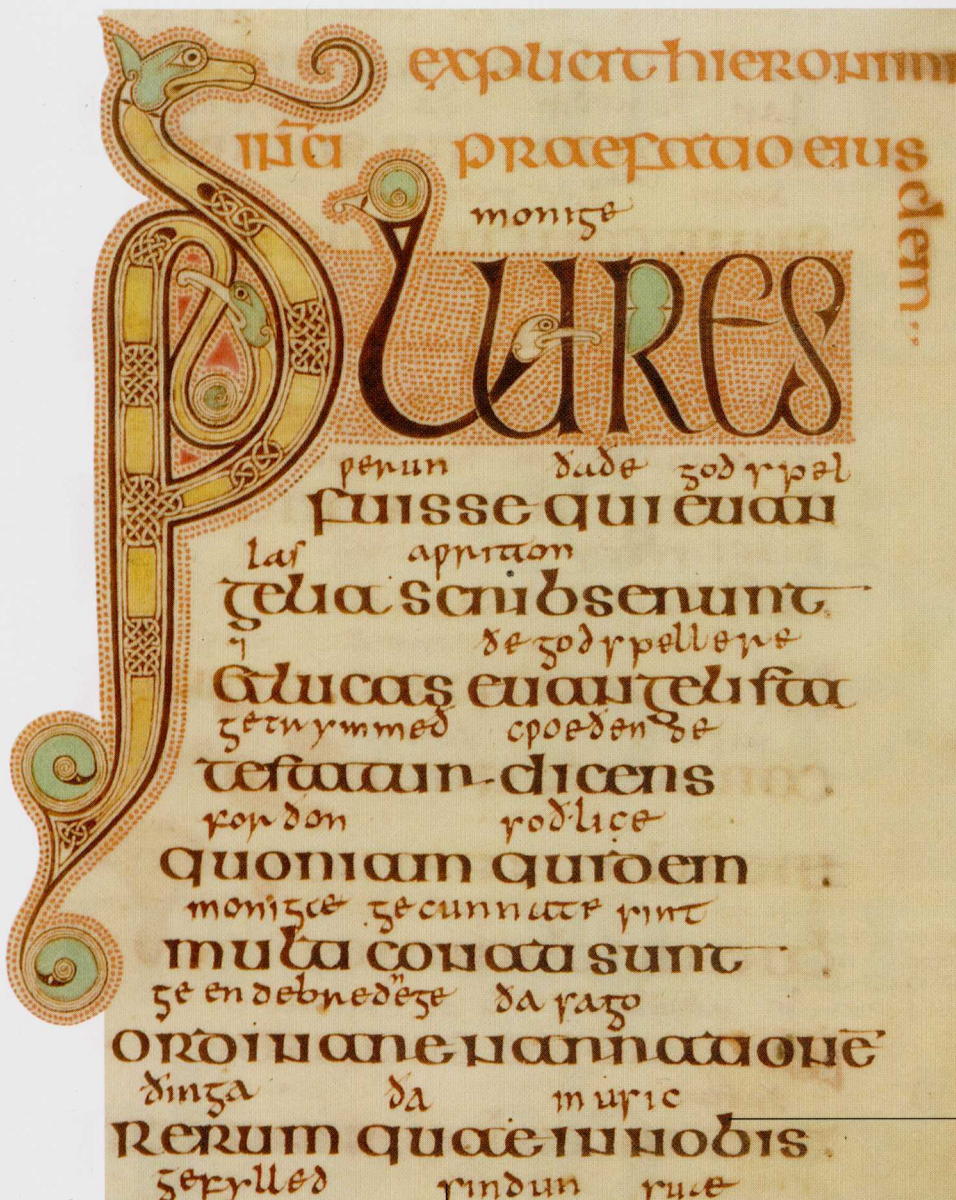 explicit hieronimi
incī praefatio eius
dem
monige
PLURES
ƿerun ðaðe godspel
fuisse qui euan
las aƿritton
gelia scribserunt
⁊ ðe godspellere
& lucas euangelista
getrymmeð cƿoeðende
testatur dicens
forðon soðlice
quoniam quidem
monigæ gecunnate sint
multi conati sunt
ge endebrednege ða sago
ordinare narrationē
ðinga ða in usic
rerum quae in nobis
gefylled sindun suæ